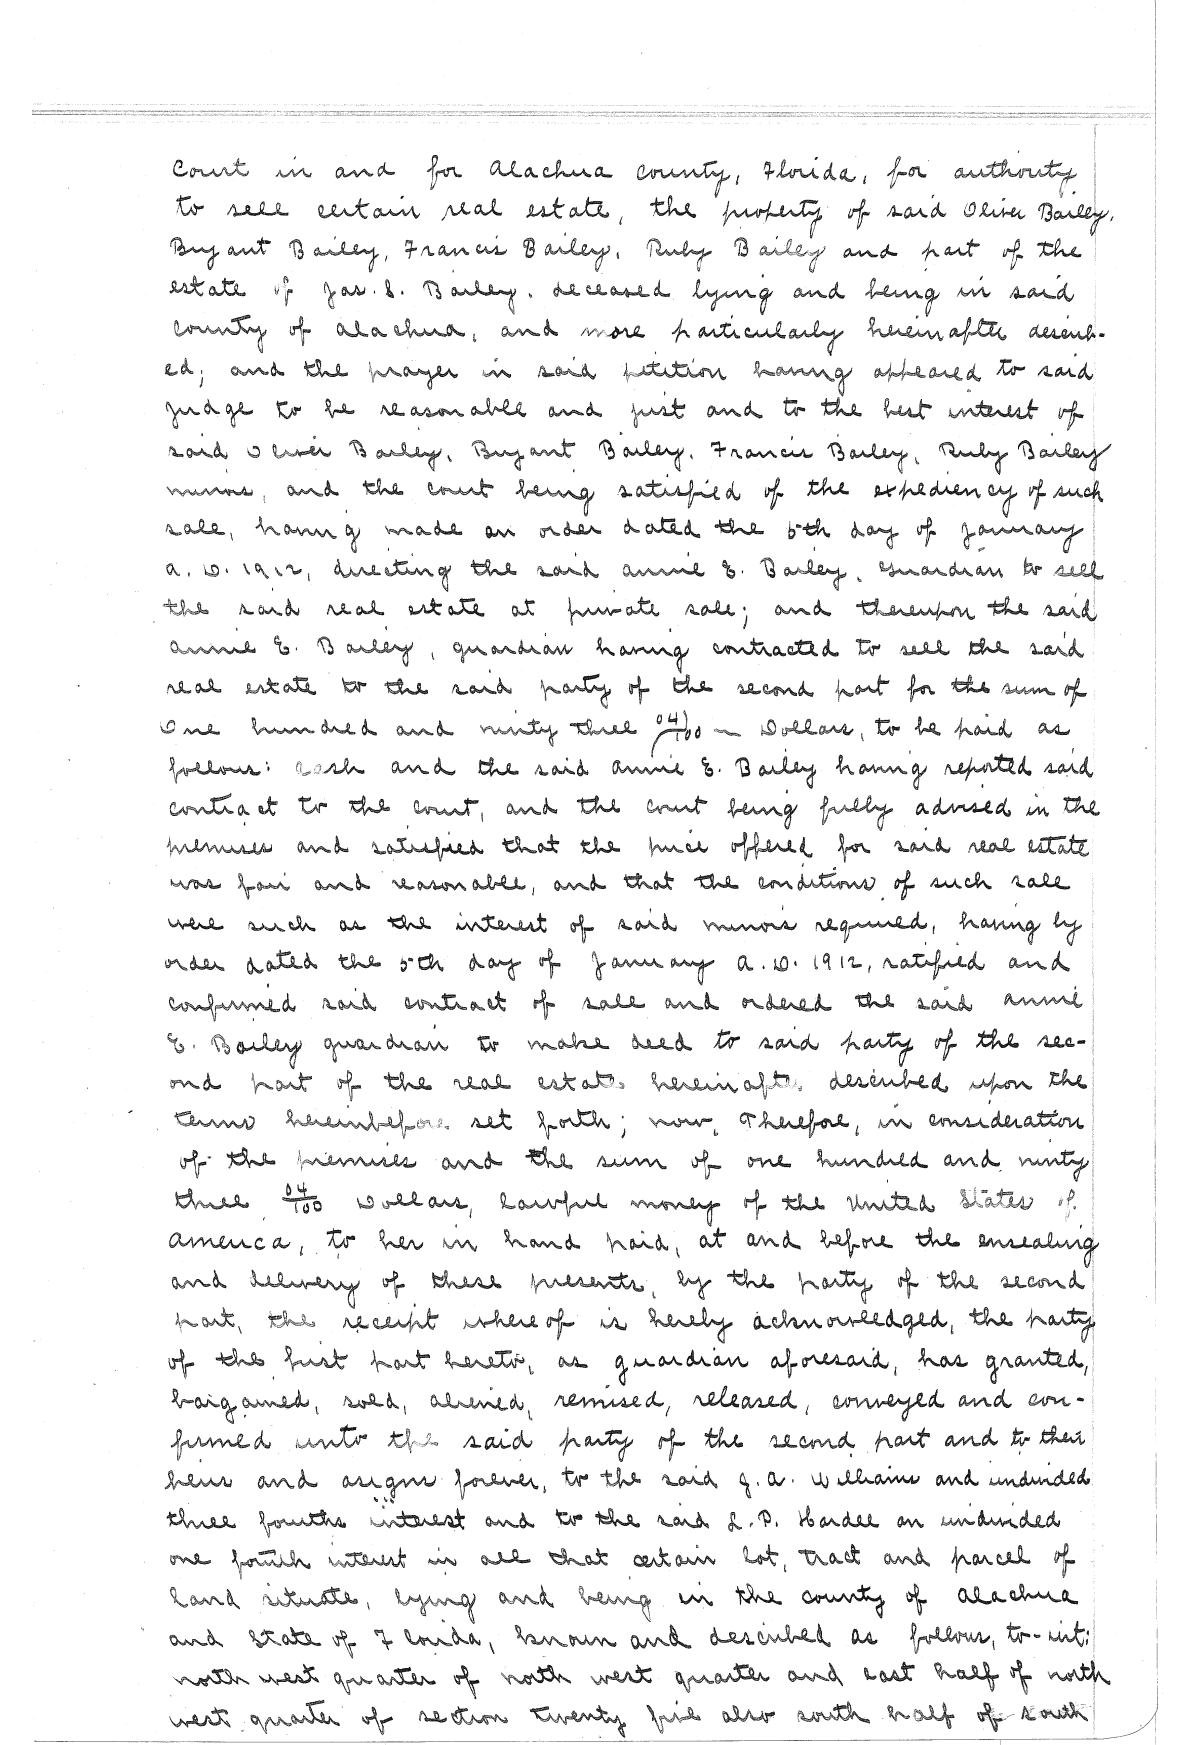 Court in and for Alachua County, Florida, for authority
to sell certain real estate, the property of said Oliver Bailey,
Bryant Bailey, Francis Bailey, Ruby Bailey and part of the
estate of Jas. S. Bailey, deceased lying and being in said
County of Alachua, and more particularly hereinafter describ-
ed; and the prayer in said petition having appeared to said
Judge to be reasonable and just and to the best interest of
said Oliver Bailey, Bryant Bailey, Francis Bailey, Ruby Bailey
minors, and the court being satisfied of the expediency of such
sale, having made an order dated the 5th day of January
A. D. 1912, directing the said Annie E. Bailey, Guardian to sell
the said real estate at private sale; and thereupon the said
Annie E. Bailey, guardian having contracted to sell the said
real estate to the said party of the second part for the sum of
One hundred and ninty three 04/100 ~ Dollars, to be paid as
follows: cash and the said Annie E. Bailey having reported said
contract to the court, and the court being fully advised in the
premises and satisfied that the price offered for said real estate
was fair and reasonable, and that the conditions of such sale
were such as the interest of said minors required, having by
order dated the 5th day of January A. D. 1912, ratified and
confirmed said contract of sale and ordered the said Annie
E. Bailey guardian to make deed to said party of the sec-
ond part of the real estate hereinafter described upon the
terms hereinbefore set forth; now, Therefore, in consideration
of the premises and the sum of one hundred and ninty
three 04/100 Dollars, lawful money of the United States of
America, to her in hand paid, at and before the ensealing
and delivery of these presents, by the party of the second
part, the receipt whereof is hereby acknowledged, the party
of the first part hereto, as guardian aforesaid, has granted,
bargained, sold, aliened, remised, released, conveyed and con-
firmed unto the said party of the second part and to their
heirs and asigns forever, to the said J. A. Williams and undivided
three fourths interest and to the said L. P. Hardee an undivided
one fourth interest in all that certain lot, tract and parcel of
land situate, lying and being in the county of Alachua
and State of Florida, known and described as follows, to-wit:
north west quarter of north west quarter and east half of north
west quarter of section twenty five also south half of south